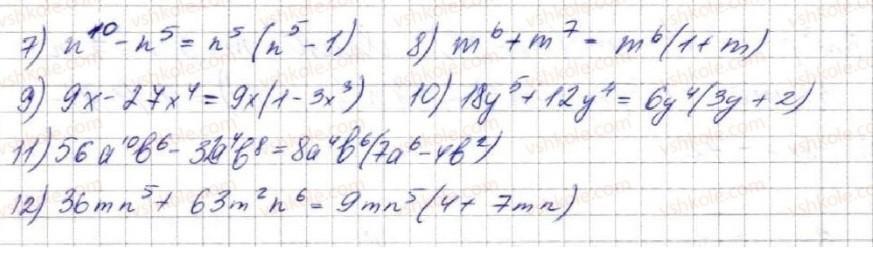 7) n¹⁰ - n⁵ = n⁵ (n⁵ - 1) 8) m⁶ + m⁷ = m⁶(1 + m)
9) 9x - 27x⁴ = 9x(1 - 3x³) 10) 18y⁵ + 12y⁴ = 6y⁴(3y + 2)
11) 56a¹⁰b⁶ - 32a⁴b⁸ = 8a⁴b⁶(7a⁶ - 4b²)
12) 36mn⁵ + 63m²n⁶ = 9mn⁵(4 + 7mn)